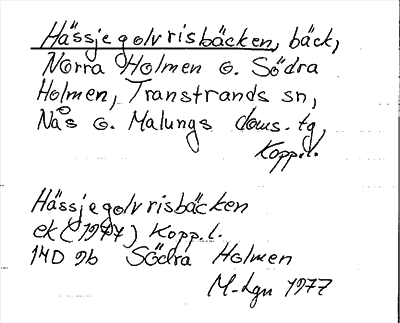 Hässjegolvrisbäcken, bäck,
Norra Holmen o. Södra
Holmen, Transtrands sn,
Nås o. Malungs doms. tg,
Kopp.l.
Hässjegolvrisbäcken
ek (1977) Kopp.l.
14D 9b Södra Holmen
M-Lgn 1977